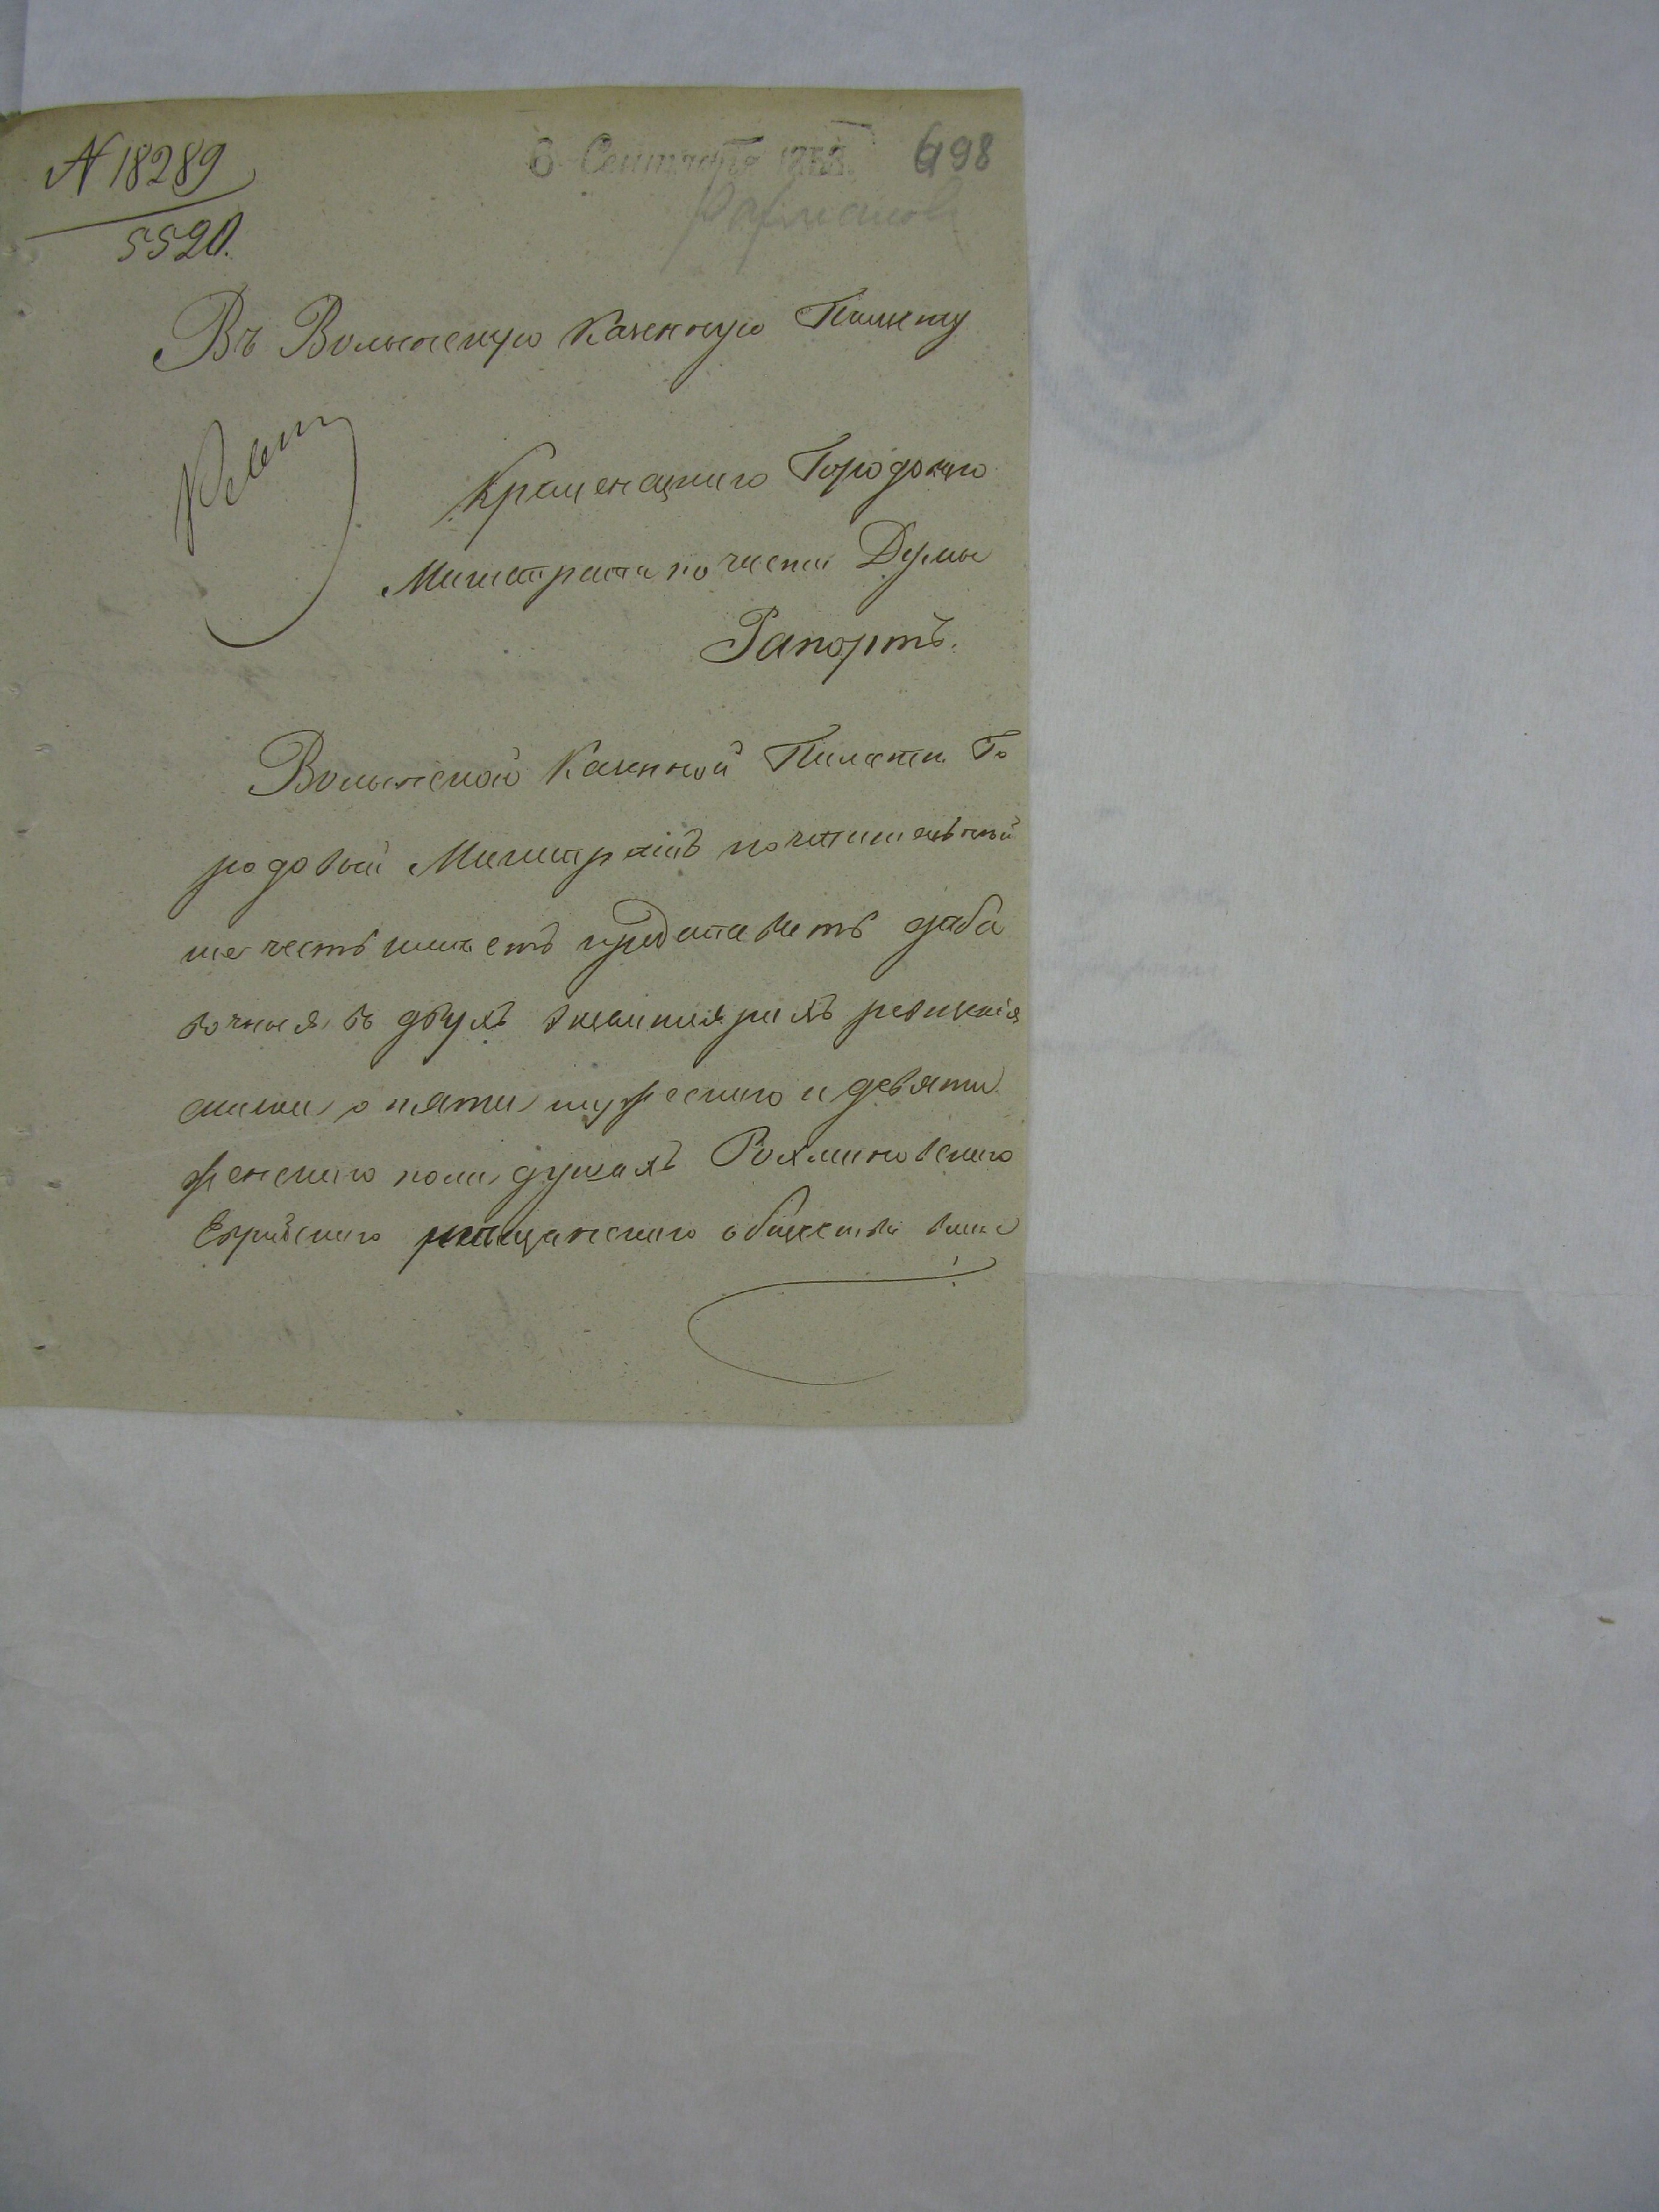 N 18289
6 Сентября 1858. 698
5520.
Рахманов
Въ Волынскую Казенную Палату
Кременецкаго Городоваго
Магистрата по части Думы
Рапортъ.
Волынской Казенной Палати Го
родовый Магистратъ почтительный
ше честь имѣетъ представить доба
вочныя въ двухъ экземплярахъ ревизкія
сказки о пяти мужескаго и девяти
женскаго пола душахъ Рохмановскаго
Еврейскаго мещанскаго общества